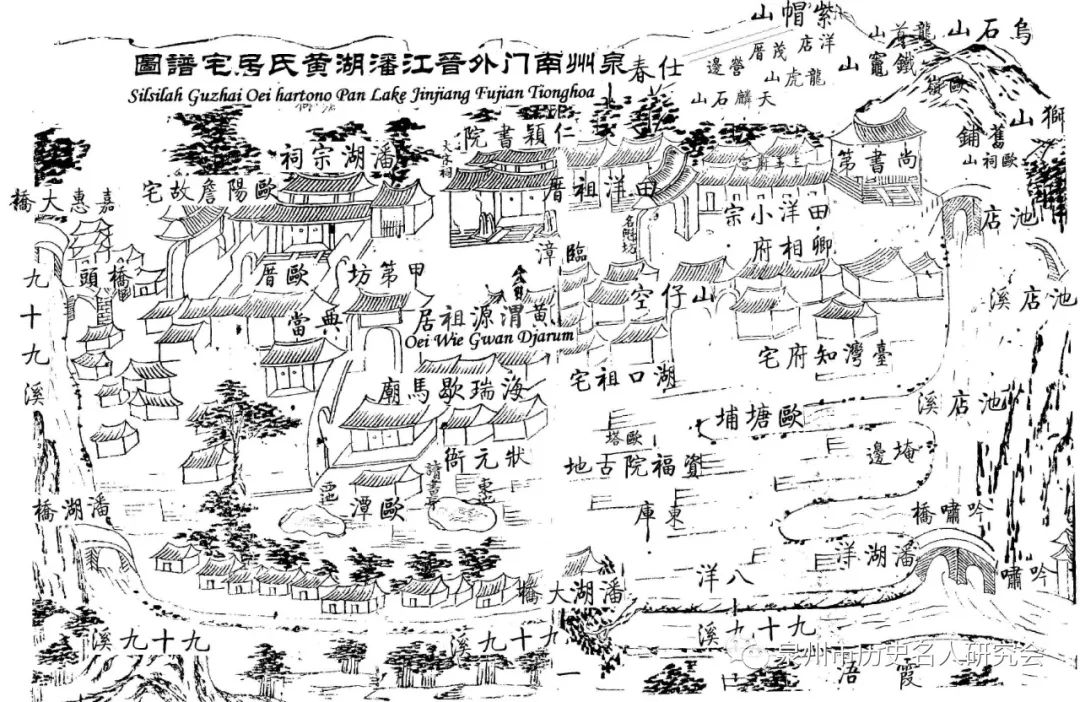 泉州南门外晉江潘湖黄氏居宅譜圖
Silsilah Guzhai Oei hartono Pan Lake Jinjiang Fujian Tionghoa
紫帽山
烏石山
龍首山
鐵竈山
洋店
茂厝
營邊
龍虎山
天麟石山
仕春
歐嶺
獅山
舊鋪
歐祠山
仁穎書院
大宗祠
潘湖宗祠
歐陽詹故宅
嘉惠大橋
田洋祖厝
尚書第
田洋小宗
卿相府
池店
池店溪
臨漳
橋頭
歐厝
甲第坊
九十九溪
典當
黃渭源祖居
Oei Wie Gwan Djarum
山仔空
臺灣知府宅
湖口祖宅
海瑞歇馬廟
池店溪
歐塘埔
歐塔
資福院古地
埯邊
狀元衙
讀書亭
東池
西池
歐潭
東庫
潘湖橋
吟嘯橋
潘湖洋
吟嘯
八洋
潘湖大橋
九十九溪
九十九溪
九十九溪
霞浯
泉州市历史名人研究会